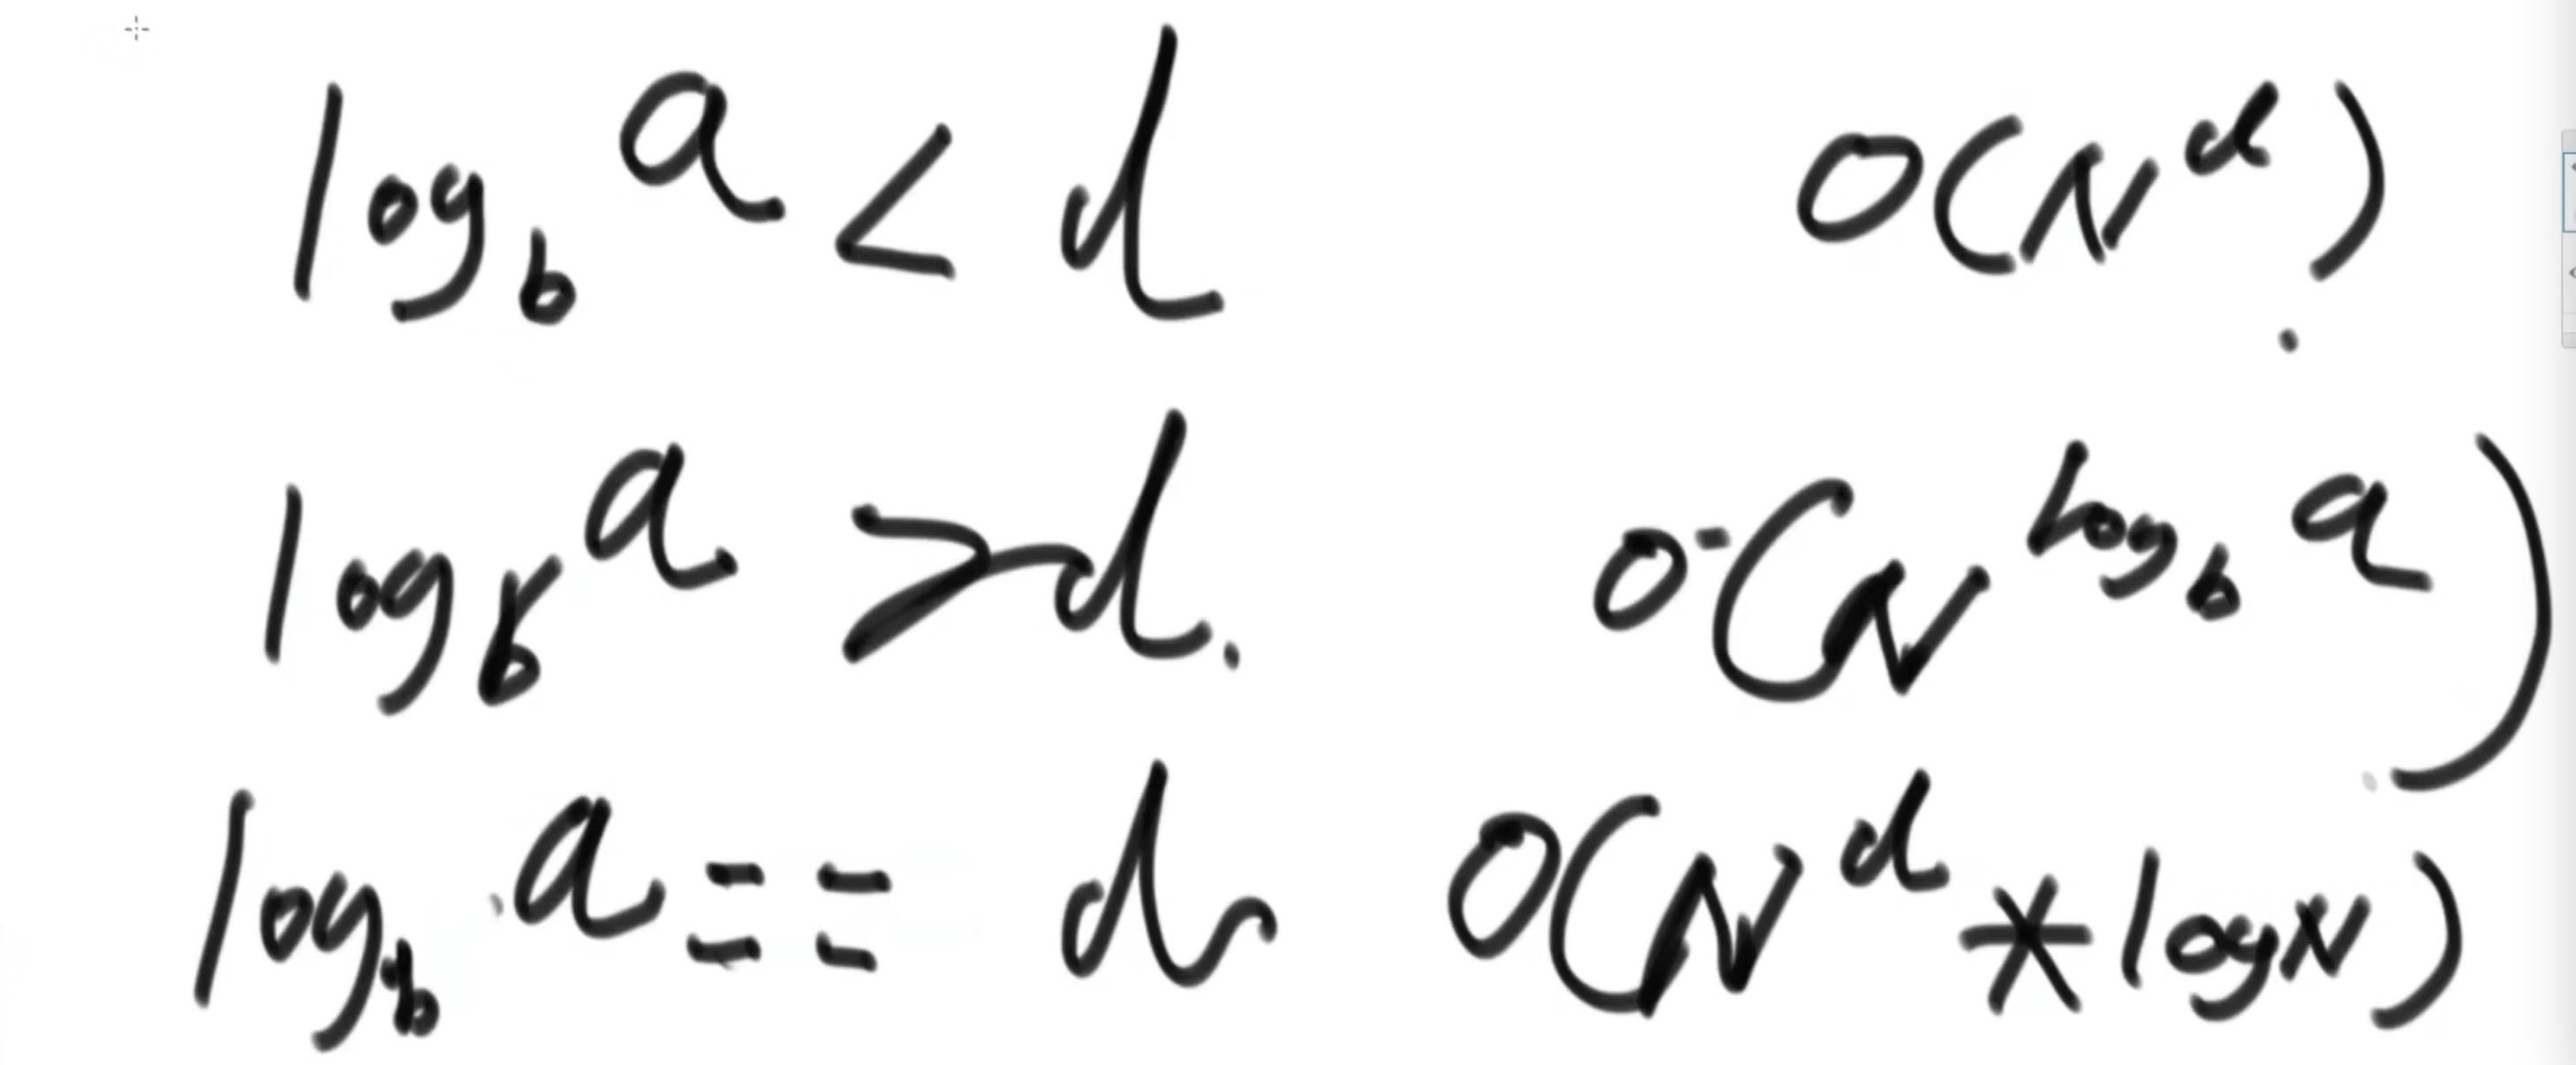 log_b a < d O(N^d)
log_b a > d. O(N^{log_b a})
log_b a == d O(N^d * logN)